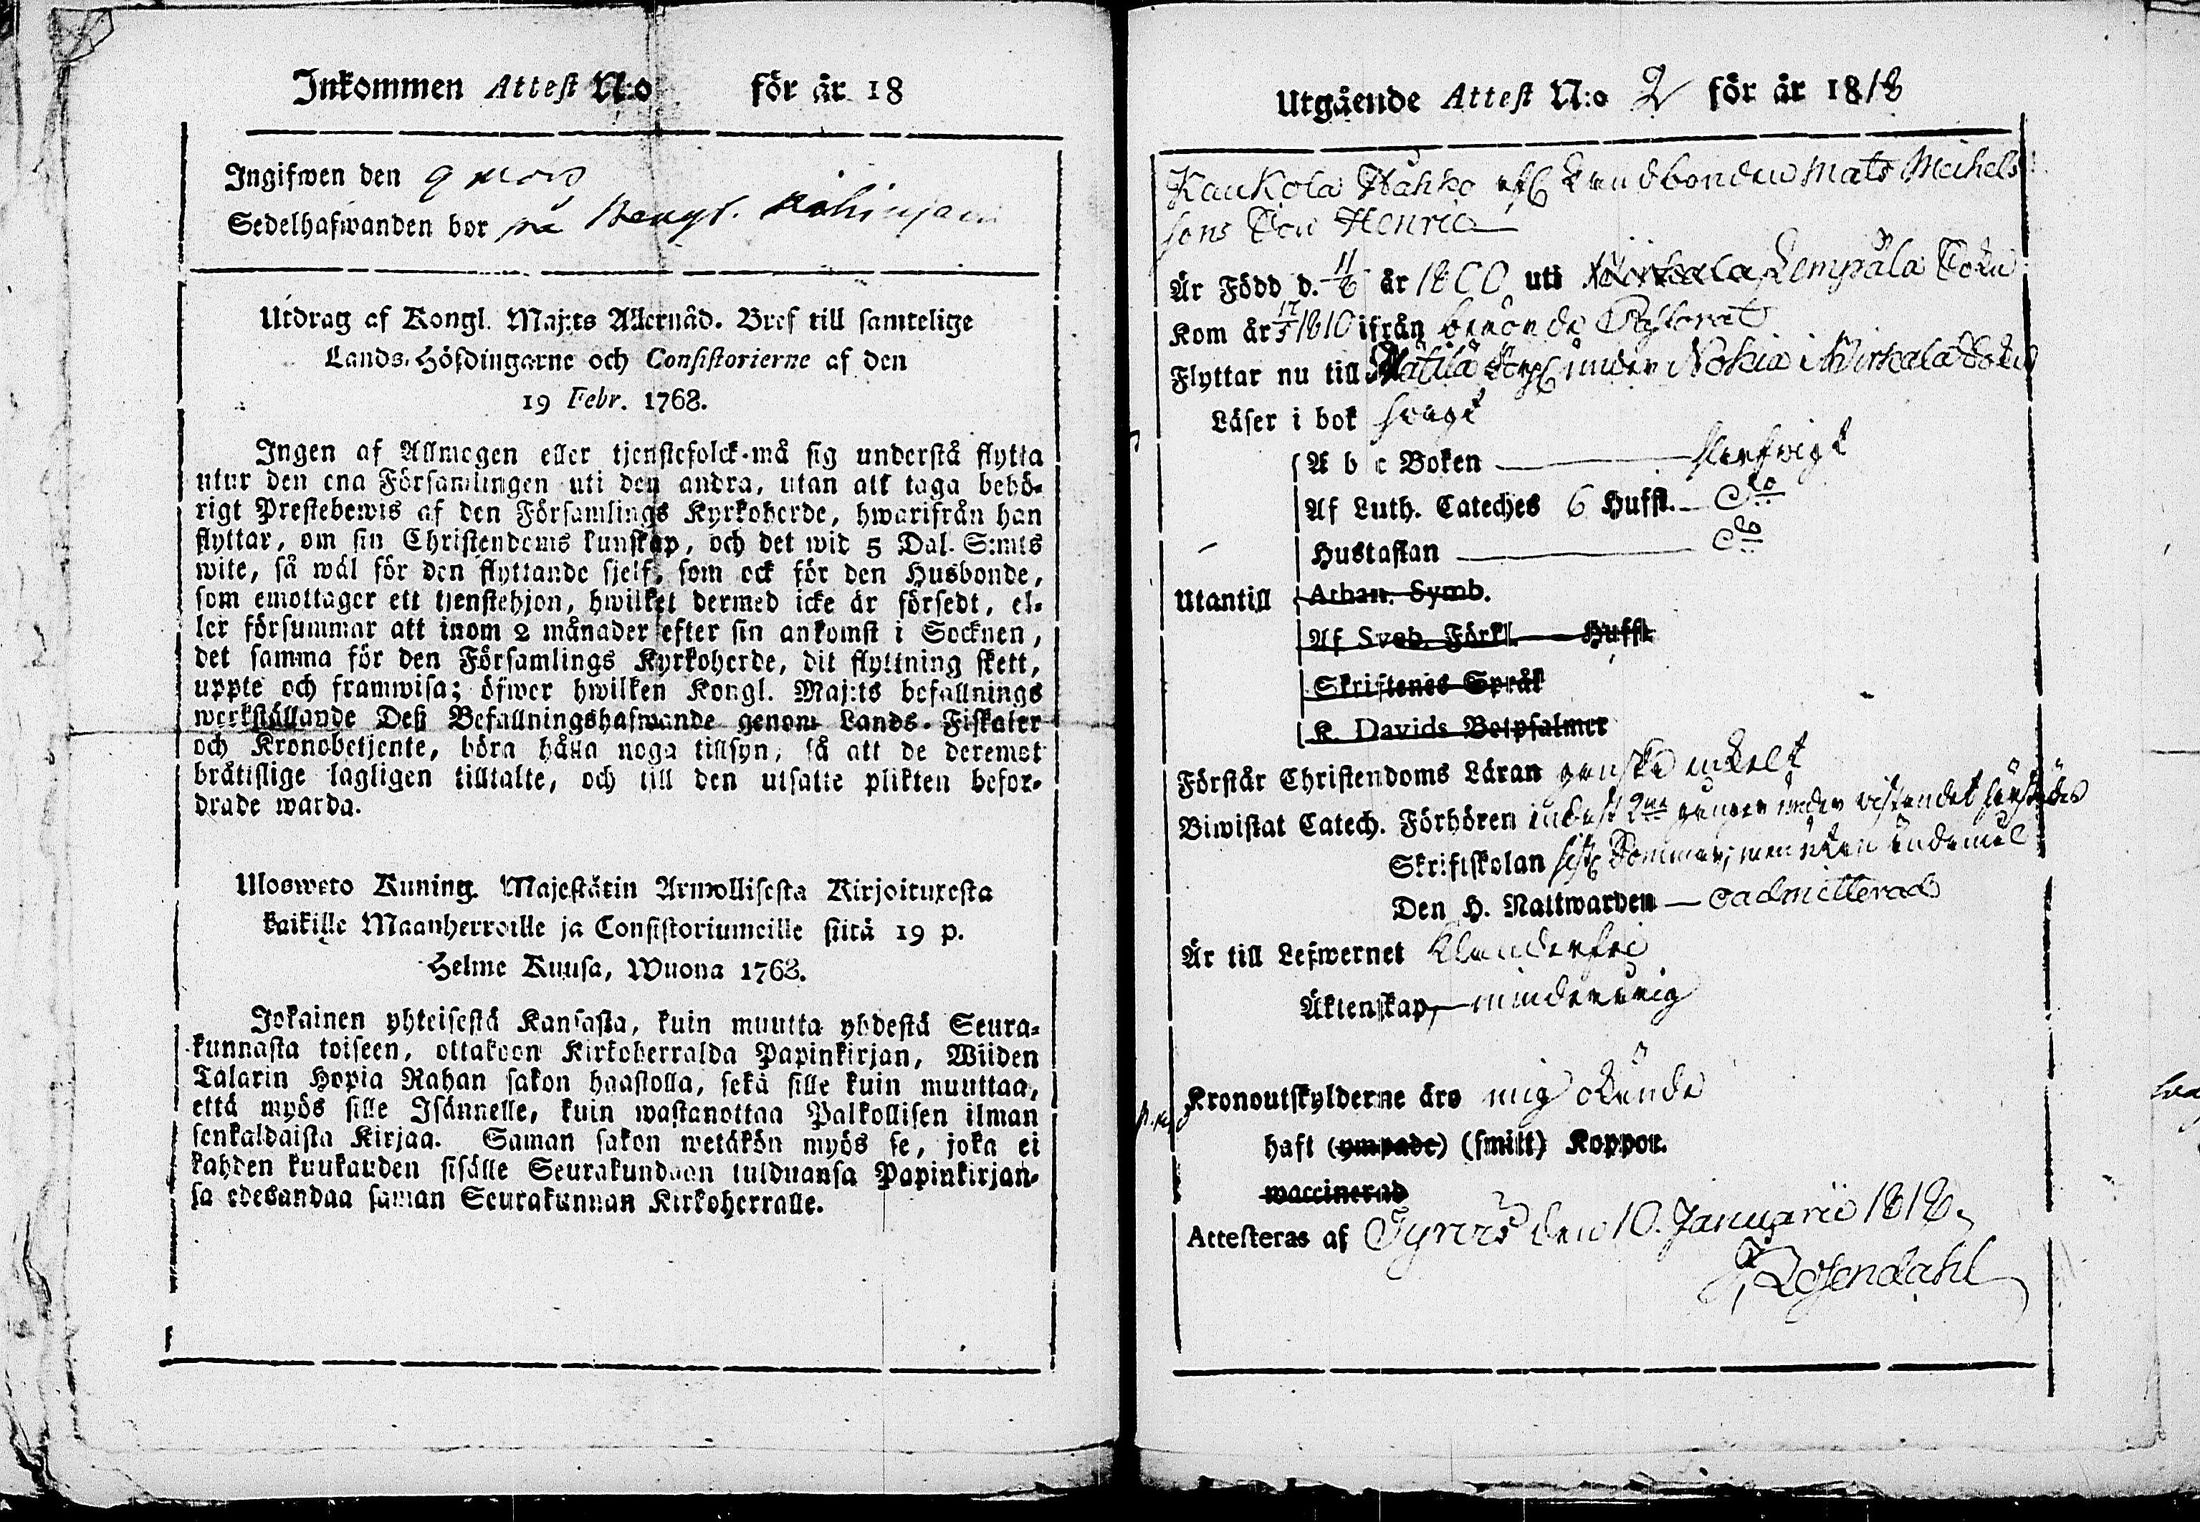 Inkommen Attest N:o för år 18
Ingifwen den 9 mars
Sedelhafwanden bor på Bengt.
Utdrag af Kongl. Maj:ts Allernåd. Bref till samtelige
Lands-Höfdingarne och Consistorierne af den
19 Febr. 1768.
Ingen af Allmogen eller tjenstefolck må sig understå flytta
utur den ena Församlingen uti den andra, utan att taga behö-
rigt Prestebewis af den Församlings Kyrkoherde, hwarifrån han
flyttar, om sin Christendoms kunskap, och det wid 5 Dal. S:mts
wite, så wäl för den flyttande sjelf, som ock för den Husbonde,
som emottager ett tjenstehjon, hwilket dermed icke är försedt, el-
ler försummar att inom 2 månader efter sin ankomst i Socknen,
det samma för den Församlings Kyrkoherde, dit flyttning skett,
uppte och framwisa; öfwer hwilken Kongl. Maj:ts befallnings
werkställande Deß Befallningshafwande genom Lands-Fiskaler
och Kronobetjente, böra hålla noga tillsyn, så att de deremot
bråttslige lagligen tilltalte, och till den utsatte plikten befor-
drade warda.
Ulosweto Kuning. Majestätin Armollisesta Kirjoituxesta
kaikille Maanherroille ja Consistoriumeille siitä 19 p.
Helme Kuusa, Wuona 1768.
Jokainen yhteisestä Kansasta, kuin muutta yhdestä Seura-
kunnasta toiseen, ottakoon Kirkoherralda Papinkirjan, Wiiden
Talarin Hopia Rahan sakon haastolla, sekä sille kuin muuttaa,
että myös sille Isännelle, kuin wastanottaa Palkollisen ilman
senkaldaista Kirjaa. Saman sakon wetäkön myös se, joka ei
kahden kuukauden sisälle Seurakundaan tulduansa Papinkirjan-
sa edesandaa saman Seurakunnan Kirkoherralle.
Utgående Attest N:o 2 för år 1818
Kaukola Hahko Landbonden Mats Meihels
sons Son Henric
Är Född d. 11/6 år 1800 uti Lempäla Sokn
Kom år 17/5 1810 ifrån berörde Pastorat
Flyttar nu till Mattila Torp under Nokia i Birkala Sokn
Läser i bok swagt
A b c Boken — slarfwigt
Af Luth. Cateches 6 Hufst. — do
Hustaflan — do
Utantill Athan. Symb.
Af Sveb. Förkl. — Hufst.
Skriftenes Språk
K. Davids Botpsalmer
Förstår Christendoms Läran ganska enkelt
Biwistat Catech. Förhören gånger under wistandet härstädes
Skriftskolan Sommar, men utan ändamål
Den H. Nattwarden — oadmitterad
Är till Lefwernet Klanderfri
Äktenskap, — minderårig
Kronoutskylderne äro mig okända
haft (ympade) (smitt) Koppor.
waccinerad
Attesteras af Tyrvis den 10. Januarii 1818.
Rosendahl